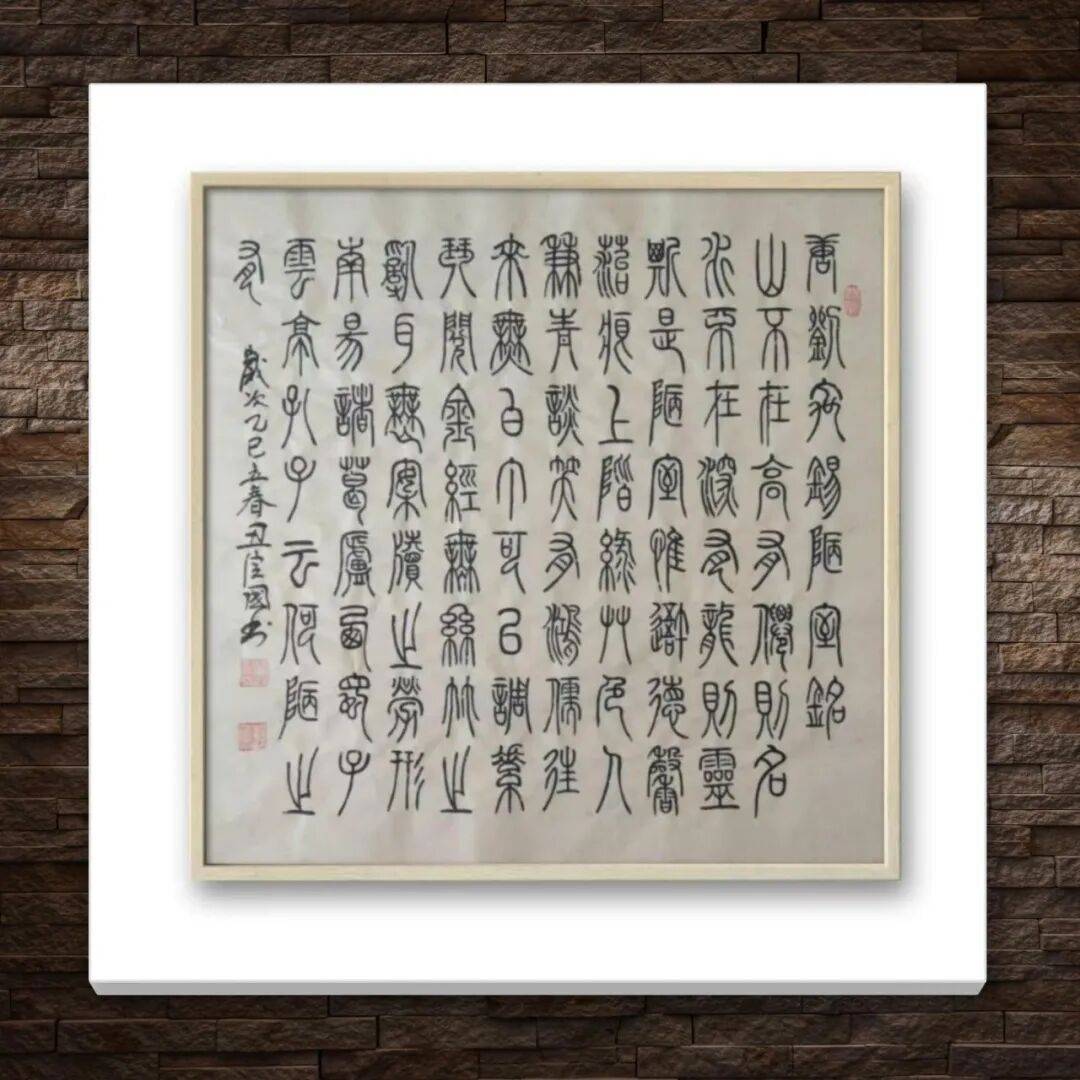 唐劉禹錫陋室銘
山不在高有僊則名
水不在深有龍則靈
斯是陋室惟吾德馨
苔痕上階綠艸色入
簾青談笑有鴻儒往
來無白丁可以調素
琴閱金經無絲竹之
亂耳無案牘之勞形
南昜諸葛廬西蜀子
雲亭孔子云何陋之
有
歲次乙巳立春國书